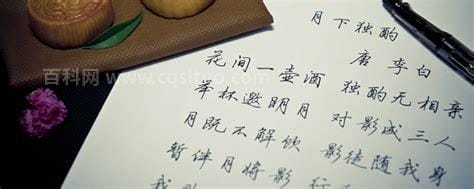 月下独酌
唐 李白
花间一壶酒 独酌无相亲
举杯邀明月 对影成三人
月既不解饮 影徒随我身
暂伴月将影 行
我
百科网